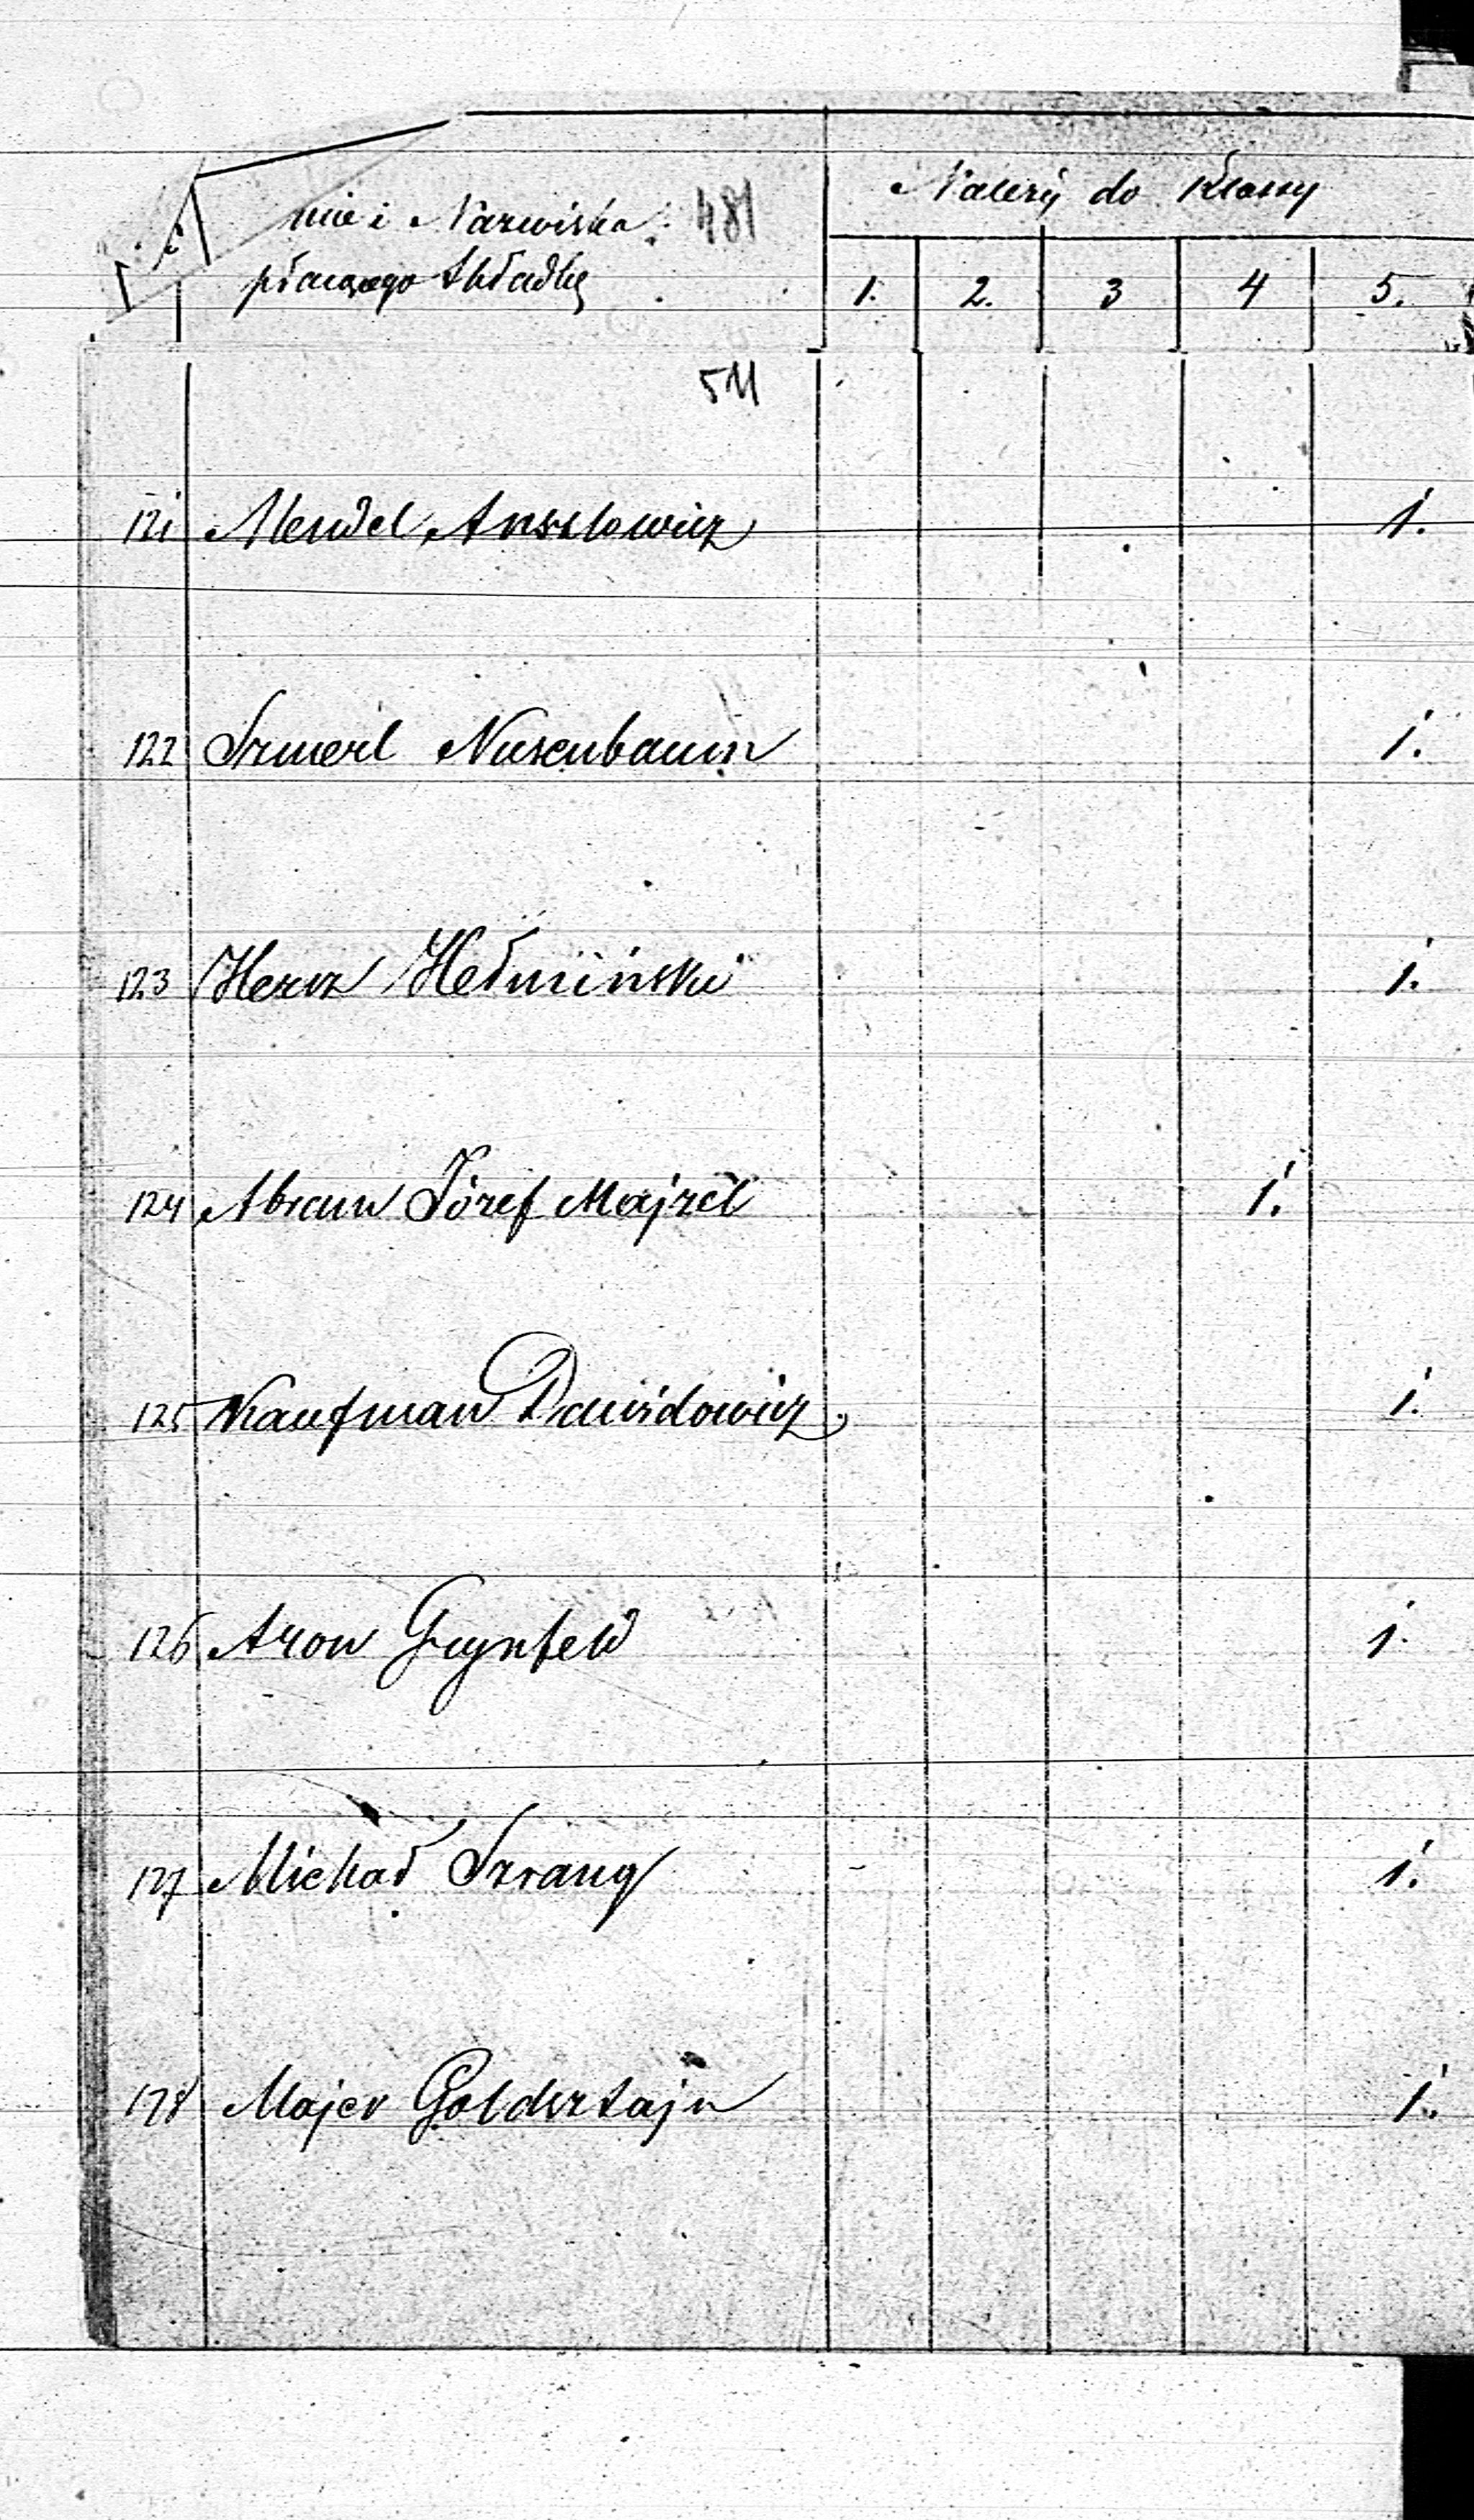 mie i Nazwiska 481
płacącego Składkę
Należy do Klassy
1. 2. 3 4 5.
511
121 Mendel Anszlowicz 1.
122 Szmerl Nusenbaum 1.
123 Hersz Hełmiński 1.
124 Abram Józef Majzel 1.
125 Kaufman Dawidowicz 1.
126 Aron Grynfeld 1.
127 Michał Szrang 1.
128 Majer Goldsztajn 1.